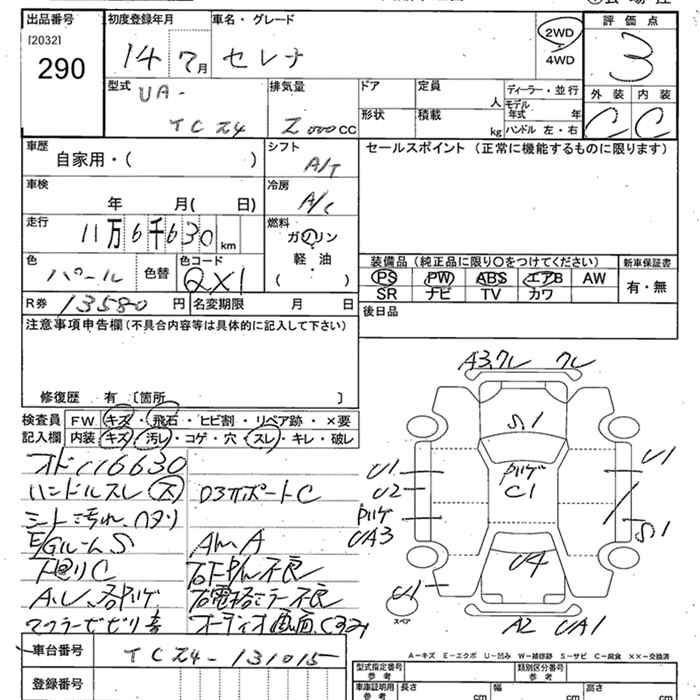 出品番号 初度登録年月 車名・グレード 評価点
[2032]
290
14 7月 セレナ 2WD 4WD 3
型式 排気量 ドア 定員 人 ディーラー・並行 外装 内装
UA-
TC24 2000cc 形状 積載 kg モデル年式 年 ハンドル 左・右 C C
車歴 自家用・( ) シフト A/T セールスポイント (正常に機能するものに限ります)
車検 年 月( 日) 冷房 A/C
走行 11万6千630km 燃料 ガソリン 軽油 ( )
装備品 (純正品に限り○をつけてください) 新車保証書
色 パール 色替 色コード QX1
PS PW ABS エアB AW 有・無
SR ナビ TV カワ
R券 13580円 名変期限 月 日 後日品
注意事項申告欄 (不具合内容等は具体的に記入して下さい)
修復歴 有 [箇所 ]
検査員記入欄 FW キズ・飛石・ヒビ割・リペア跡・×要
内装 キズ・汚レ・コゲ・穴・スレ・キレ・破レ
オド116630
ハンドルスレ
シート汚れ、ヘタリ
E/GルームS
下回りC
マフラービビリ音
AMA
右電格ミラー不良
オーディオ画面くすみ
A3,ワレ ワレ
S1
U1
U2
C1
UA3
U1
S1
U4
U1
A2 UA1
スペア
車台番号 TC24-131015
A－キズ E－エクボ U－凹み W－補修跡 S－サビ C－腐食 ××－交換済
登録番号
型式指定番号 参考 類別区分番号 参考
車庫証明用 参考 長さ cm 幅 cm 高さ cm